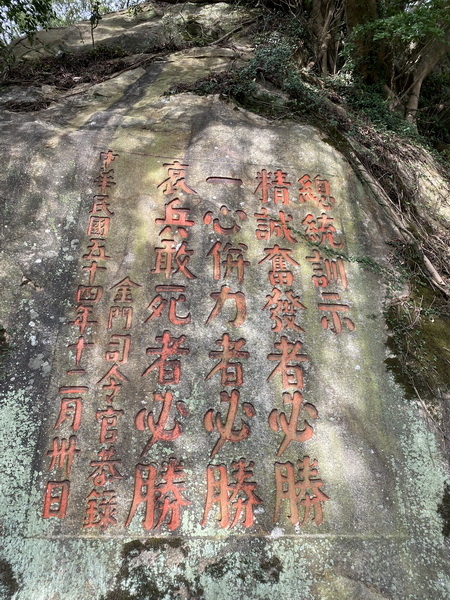 總統訓示
精誠奮發者必勝
一心併力者必勝
哀兵敢死者必勝
金門司令官恭錄
中華民國五十四年十二月卅日